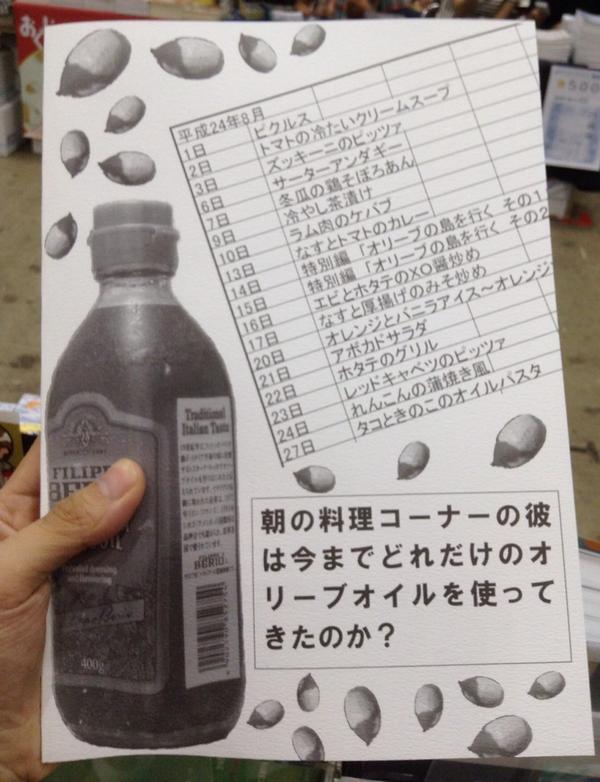 平成24年8月
1日 ピクルス
2日 トマトの冷たいクリームスープ
3日 ズッキーニのピッツァ
6日 サーターアンダギー
7日 冬瓜の鶏そぼろあん
9日 冷やし茶漬け
10日 ラム肉のケバブ
13日 なすとトマトのカレー
14日 特別編「オリーブの島を行く その1
15日 特別編「オリーブの島を行く その2
16日 エビとホタテのXO醤炒め
17日 なすと厚揚げのみそ炒め
20日 オレンジとバニラアイス～オレンジ
21日 アボカドサラダ
22日 ホタテのグリル
23日 レッドキャベツのピッツァ
24日 れんこんの蒲焼き風
27日 タコときのこのオイルパスタ
Traditional
Italian Taste
FILIPP
BERIO
400g
朝の料理コーナーの彼
は今までどれだけのオ
リーブオイルを使って
きたのか？